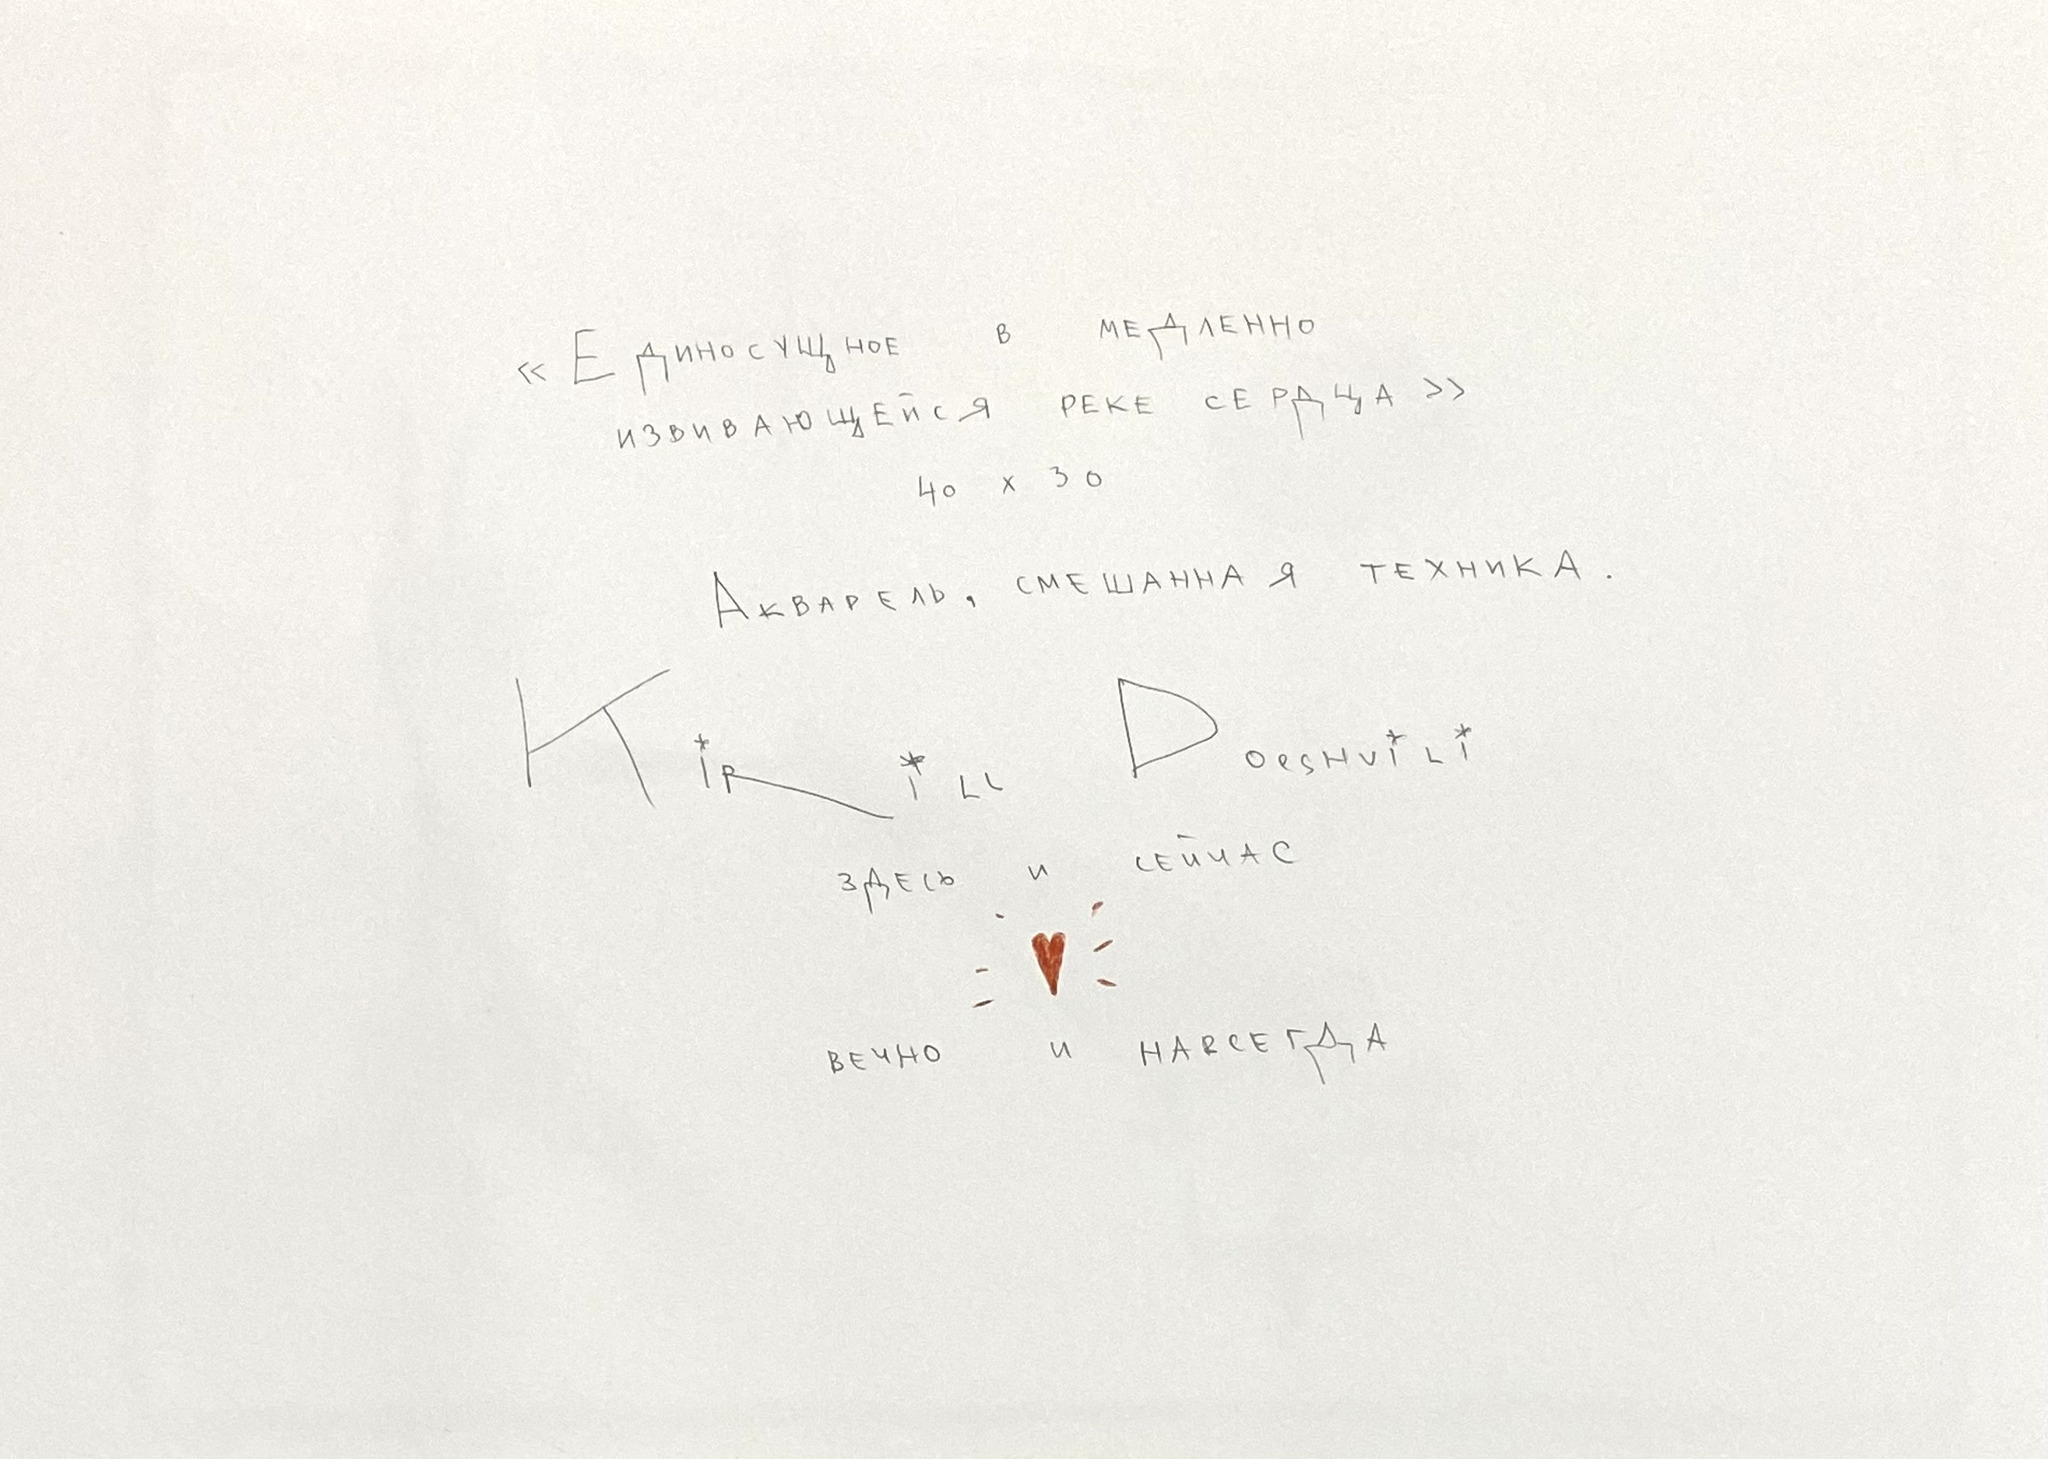 « Единосущное в медленно
извивающейся реке сердца »
40 х 30
Акварель, смешанная техника.
Kirill Dorshvili
здесь и сейчас
вечно и навсегда